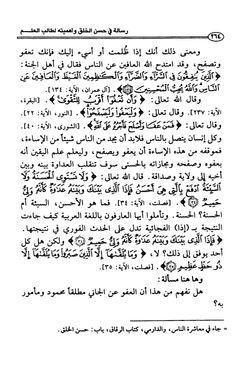 ٢٦٤ رسالة في حسن الخلق وأهميته لطالب العلم
ومعنى ذلك أنك إذا ظلمت أو أسيء إليك فإنك تعفو
وتصفح، وقد امتدح الله العافين عن الناس فقال في أهل الجنة:
﴿الَّذِينَ يُنفِقُونَ فِي السَّرَّاءِ وَالضَّرَّاءِ وَالْكَاظِمِينَ الْغَيْظَ وَالْعَافِينَ عَنِ
النَّاسِ وَاللَّهُ يُحِبُّ الْمُحْسِنِينَ﴾ [آل عمران، الآية: ١٣٤].
وقال الله تعالى: ﴿وَأَن تَعْفُوا أَقْرَبُ لِلتَّقْوَى﴾ [البقرة،
الآية: ٢٣٧]. وقال تعالى: ﴿وَلْيَعْفُوا وَلْيَصْفَحُوا﴾ [النور، الآية: ٢٢].
وقال تعالى: ﴿فَمَنْ عَفَا وَأَصْلَحَ فَأَجْرُهُ عَلَى اللَّهِ﴾ [الشورى، الآية: ٤٠].
وكل إنسان يتصل بالناس فلابد أن يجد من الناس شيئاً من الإساءة،
فموقفه من هذه الإساءة أن يعفو ويصفح، وليعلم علم اليقين أنه
بعفوه وصفحه ومجازاته بالحسنى سوف تنقلب العداوة بينه وبين
أخيه إلى ولاية وصداقة. قال الله تعالى: ﴿وَلَا تَسْتَوِي الْحَسَنَةُ وَلَا
السَّيِّئَةُ ادْفَعْ بِالَّتِي هِيَ أَحْسَنُ فَإِذَا الَّذِي بَيْنَكَ وَبَيْنَهُ عَدَاوَةٌ كَأَنَّهُ وَلِيٌّ
حَمِيمٌ﴾ [فصلت، الآية: ٣٤]. فما هو الأحسن، السيئة أم
الحسنة؟ الحسنة. وتأملوا أيها العارفون باللغة العربية كيف جاءت
النتيجة بـ(إذا) الفجائية تدل على الحدث الفوري في نتيجتها.
﴿فَإِذَا الَّذِي بَيْنَكَ وَبَيْنَهُ عَدَاوَةٌ كَأَنَّهُ وَلِيٌّ حَمِيمٌ﴾ ولكن هل كل
أحد يوفق إلى ذلك؟ لا، ﴿وَمَا يُلَقَّاهَا إِلَّا الَّذِينَ صَبَرُوا وَمَا يُلَقَّاهَا إِلَّا
ذُو حَظٍّ عَظِيمٍ﴾ [فصلت، الآية: ٣٥].
وها هنا مسألة:
هل نفهم من هذا أن العفو عن الجاني مطلقاً محمود ومأمور
به؟
= جاء في معاشرة الناس، والدارمي، كتاب الرقاق، باب: حسن الخلق.